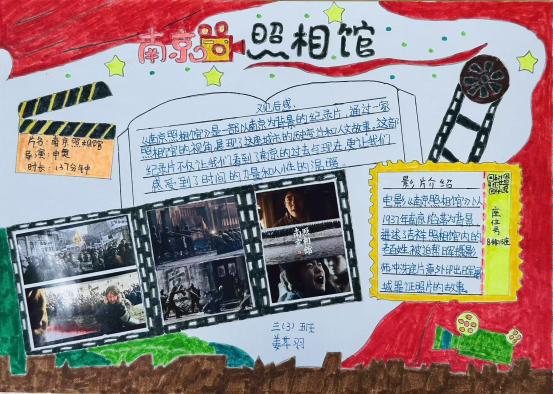 南京照相馆
片名:南京照相馆
导演:申奥
时长:137分钟
观后感
《南京照相馆》是一部以南京为背景的纪录片,通过一家
照相馆的视角,展现了这座城市的历史变迁和人文故事。这部
纪录片不仅让我们看到了南京的过去与现在,更让我们
感受到了时间的力量和人性的温暖
影片介绍
电影《南京照相馆》以
1937年南京沦陷为背景
讲述吉祥照相馆内的
老百姓被迫帮日军摄影
师冲洗底片意外印出日军屠
城罪证照片的故事。
座位号
三(3)班